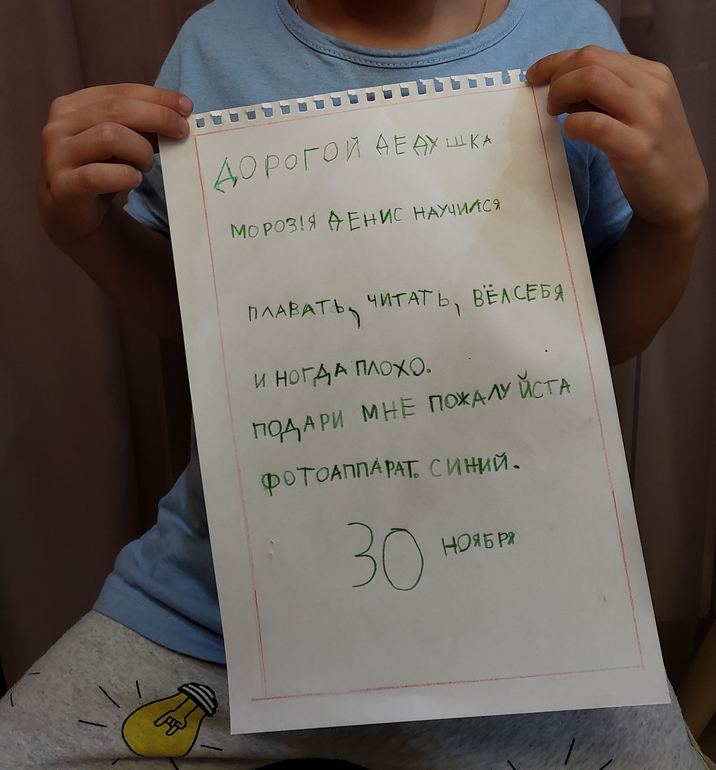 ДОРОГОЙ ДЕДУШКА
МОРОЗ!Я ДЕНИС НАУЧИЛСЯ
ПЛАВАТЬ, ЧИТАТЬ, ВЁЛСЕБЯ
И НОГДА ПЛОХО.
ПОДАРИ МНЕ ПОЖАЛУЙСТА
ФОТОАППАРАТ. СИНИЙ.
30 НОЯБРЯ